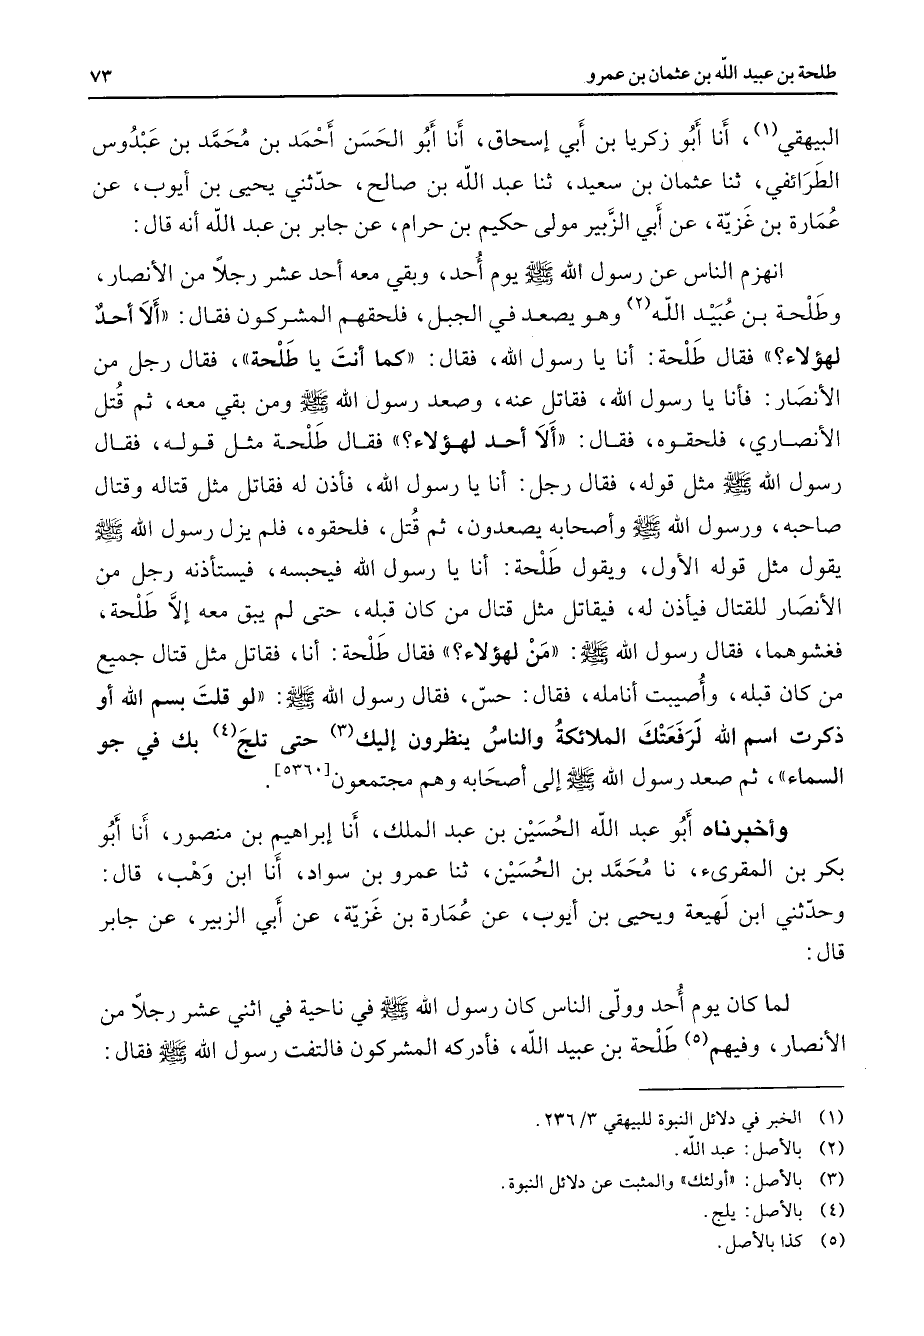 طلحة بن عبيد اللّه بن عثمان بن عمرو ٧٣
البيهقي(١)، أَنا أَبُو زكريا بن أَبي إسحاق، أَنا أَبُو الحَسَن أَحْمَد بن مُحَمَّد بن عَبْدُوس
الطَرَائفي، ثنا عثمان بن سعيد، ثنا عبد اللّه بن صالح، حدّثني يحيى بن أيوب، عن
عُمَارة بن غَزيّة، عن أَبي الزَّبير مولى حكيم بن حرام، عن جابر بن عبد اللّه أنه قال:
انهزم الناس عن رسول الله ﷺ يوم أُحد، وبقي معه أحد عشر رجلاً من الأنصار،
وطَلْحة بن عُبَيْد اللّه(٢) وهو يصعد في الجبل، فلحقهم المشركون فقال: «أَلَا أحدٌ
لهؤلاء؟» فقال طَلْحة: أنا يا رسول الله، فقال: «كما أنتَ يا طَلْحة»، فقال رجل من
الأنصَار: فأنا يا رسول الله، فقاتل عنه، وصعد رسول الله ﷺ ومن بقي معه، ثم قُتل
الأنصاري، فلحقوه، فقال: «أَلَا أحد لهؤلاء؟» فقال طَلْحة مثل قوله، فقال
رسول الله ﷺ مثل قوله، فقال رجل: أنا يا رسول الله، فأذن له فقاتل مثل قتاله وقتال
صاحبه، ورسول الله ﷺ وأصحابه يصعدون، ثم قُتل، فلحقوه، فلم يزل رسول الله ﷺ
يقول مثل قوله الأول، ويقول طَلْحة: أنا يا رسول الله فيحبسه، فيستأذنه رجل من
الأنصَار للقتال فيأذن له، فيقاتل مثل قتال من كان قبله، حتى لم يبق معه إلاَّ طَلْحة،
فغشوهما، فقال رسول الله ﷺ: «مَنْ لهؤلاء؟» فقال طَلْحة: أنا، فقاتل مثل قتال جميع
من كان قبله، وأُصيبت أنامله، فقال: حسّ، فقال رسول الله ﷺ: «لو قلتَ بسم الله أو
ذكرت اسم الله لَرَفَعَتْكَ الملائكةُ والناسُ ينظرون إليك(٣) حتى تلجَ(٤) بك في جو
السماء»، ثم صعد رسول الله ﷺ إلى أصحَابه وهم مجتمعون[٥٣٦٠].
وأخبرناه أَبُو عبد اللّه الحُسَيْن بن عبد الملك، أَنا إبراهيم بن منصور، أَنا أَبُو
بكر بن المقرىء، نا مُحَمَّد بن الحُسَيْن، ثنا عمرو بن سواد، أَنا ابن وَهْب، قال:
وحدّثني ابن لَهيعة ويحيى بن أيوب، عن عُمَارة بن غَزيّة، عن أَبي الزبير، عن جابر
قال:
لما كان يوم أُحد وولّى الناس كان رسول الله ﷺ في ناحية في اثني عشر رجلاً من
الأنصار، وفيهم(٥) طَلْحة بن عبيد اللّه، فأدركه المشركون فالتفت رسول الله ﷺ فقال:
(١) الخبر في دلائل النبوة للبيهقي ٢٣٦/٣.
(٢) بالأصل: عبد اللّه.
(٣) بالأصل: «أولئك» والمثبت عن دلائل النبوة.
(٤) بالأصل: يلج.
(٥) كذا بالأصل.